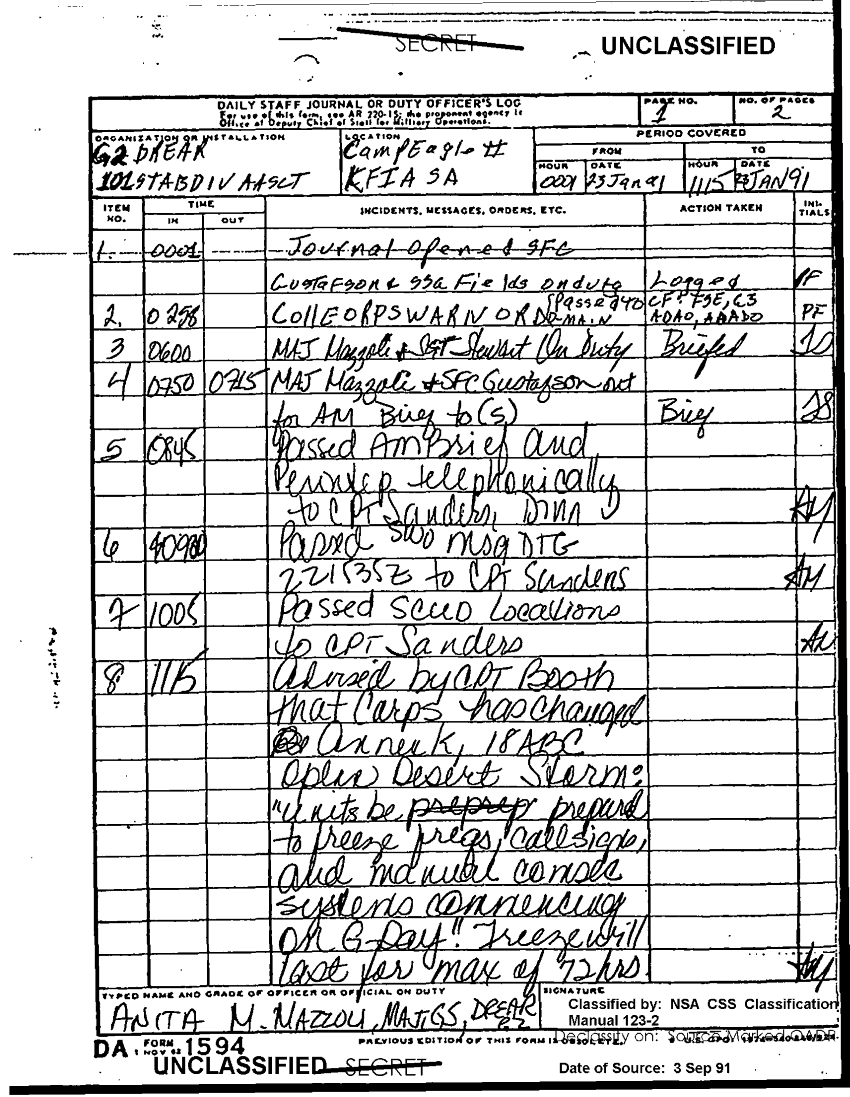 SECRET UNCLASSIFIED
DAILY STAFF JOURNAL OR DUTY OFFICER'S LOG
For use of this form, see AR 220-15; the proponent agency is
Office of Deputy Chief of Staff for Military Operations.
PAGE NO.
1
NO. OF PAGES
2
ORGANIZATION OR INSTALLATION
G2 DREAR
101STABDIV AASLT
LOCATION
Camp Eagle II
KFIA SA
PERIOD COVERED
FROM TO
HOUR DATE HOUR DATE
0001 23 Jan 91 1115 23 JAN 91
ITEM NO. TIME IN OUT INCIDENTS, MESSAGES, ORDERS, ETC. ACTION TAKEN INITIALS
1. 0001 Journal opened SFC
Gustafson & SSG Fields on duty Logged PF
2. 0258 COLLE CORPS WARN ORD (Passed to D-MAIN CF: FSE, G3 ADAO, PF
3 0600 MAJ Mazzoli & SGT Stewart On Duty Briefed
4 0750 0715 MAJ Mazzoli & SFC Gustafson out
for AM Brief to (S) Brief
5 0845 Passed AM Brief and
Perintrep telephonically
to CPT Sanders, DMN AM
6 0900 Passed SWO msg DTG
221535Z to CPT Sanders AM
7 1005 Passed SCUD Locations
to CPT Sanders AM
8 1115 Advised by CPT Booth
that Corps has changed
Annex K, 18 ABC
Oplan Desert Storm:
"units be preprep prepared
to freeze freqs, callsigns,
and manual comsec
systems commencing
on G-Day". Freeze will
last for max of 72 hrs. AM
TYPED NAME AND GRADE OF OFFICER OR OFFICIAL ON DUTY
ANITA M. MAZZOLI, MAJ, GS, DREAR G2
SIGNATURE
Classified by: NSA CSS Classification
Manual 123-2
Declassify on: Source Marked OADR
DA FORM 1594
1 NOV 62
PREVIOUS EDITION OF THIS FORM IS OBSOLETE.
UNCLASSIFIED SECRET
Date of Source: 3 Sep 91